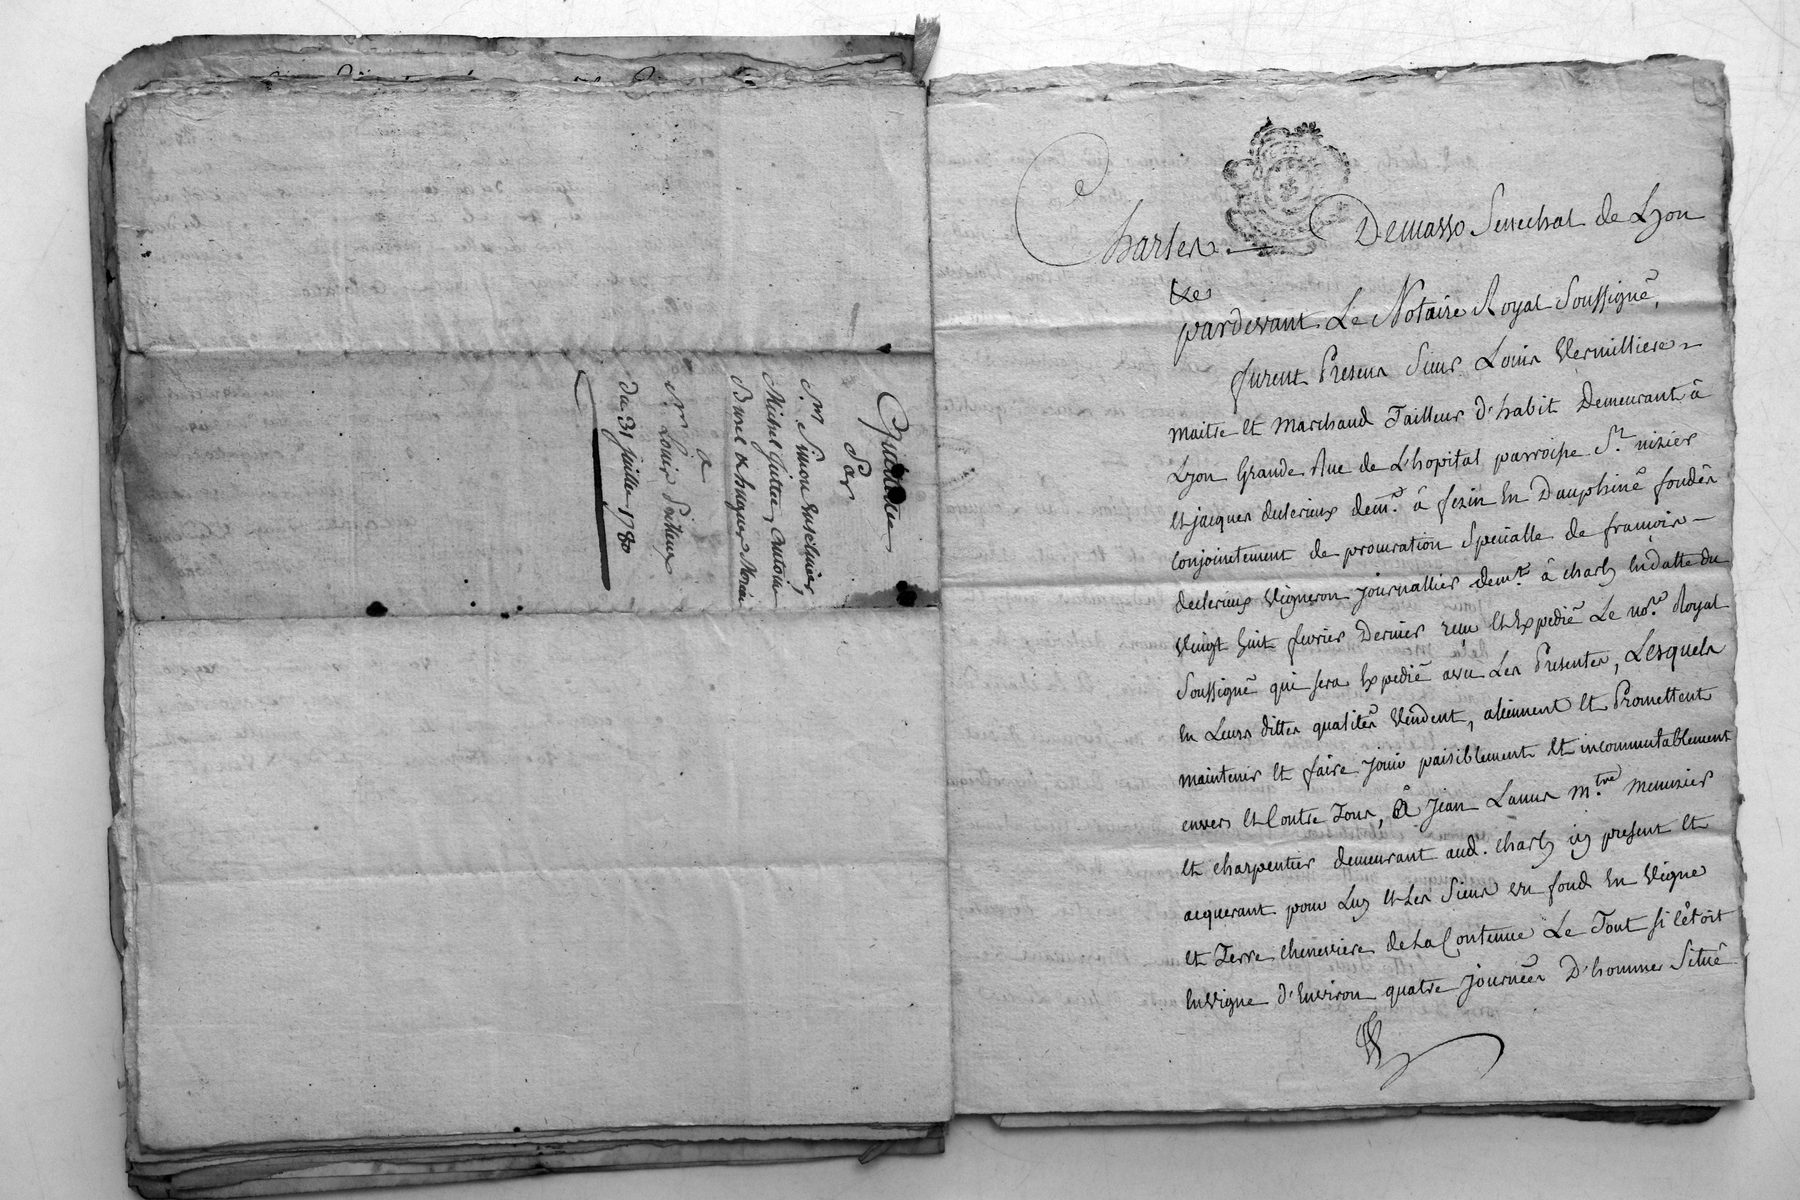 Quittance
Par
Sr. Simon
Michel Antoine
Burel & hugues
a
Sr. Louis
du 31 juillet 1780
Charles Demasso Senechal de Lyon
pardevant Le Notaire Royal Soussigné,
furent Presens Sieur Louis Vermilliere
maitre et marchand Tailleur d'habit Demeurant à
Lyon Grande Rue de L'hopital parroisse St. nizier
et jacques declerieux demt. à fezin en Dauphiné fondés
conjointement de procuration Specialle de francois
declerieux vigneron journallier demt. à charly en datte du
vingt huit fevrier Dernier reçu et Expedié Le nore. Royal
Soussigné qui sera Expedié avec Les Presentes, Lesquels
en Leurs dittes qualités vendent, alienent et Promettent
maintenir et faire jouir paisiblement et incommutablement
envers et Contre Tous, à jean Lanus mtre menuzier
et charpentier demeurant aud. charly icy present et
acquerant pour Luy et Les Siens un fond en vigne
et Terre cheneviere de La Contenue Le Tout si c'étoit
en vigne d'Environ quatre journées D'hommes Situé